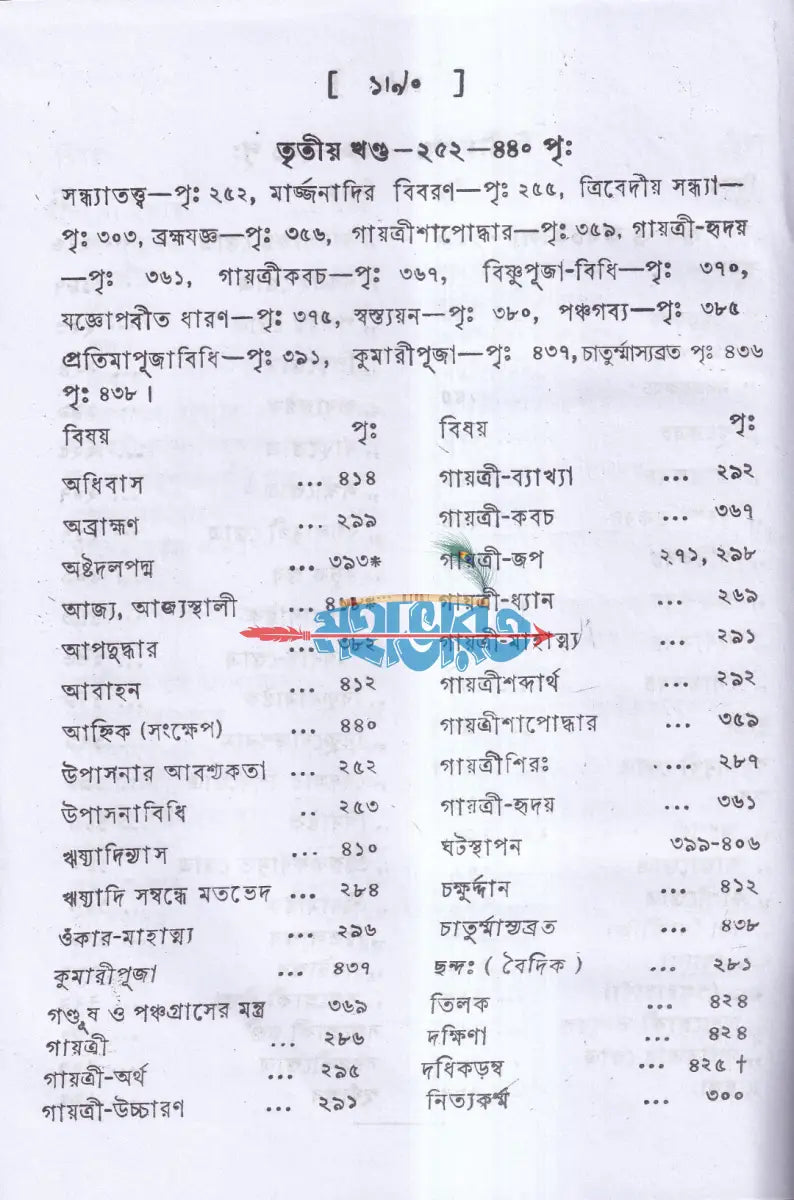 [ ১৷৶৹ ]
তৃতীয় খণ্ড—২৫২—৪৪০ পৃঃ
সন্ধ্যাতত্ত্ব—পৃঃ ২৫২, মার্জ্জনাদির বিবরণ—পৃঃ ২৫৫, ত্রিবেদীয় সন্ধ্যা—
পৃঃ ৩০৩, ব্রহ্মযজ্ঞ—পৃঃ ৩৫৬, গায়ত্রীশাপোদ্ধার—পৃঃ ৩৫৯, গায়ত্রী-হৃদয়
—পৃঃ ৩৬১, গায়ত্রীকবচ—পৃঃ ৩৬৭, বিষ্ণুপূজা-বিধি—পৃঃ ৩৭০,
যজ্ঞোপবীত ধারণ—পৃঃ ৩৭৫, স্বস্ত্যয়ন—পৃঃ ৩৮০, পঞ্চগব্য—পৃঃ ৩৮৫
প্রতিমাপূজাবিধি—পৃঃ ৩৯১, কুমারীপূজা—পৃঃ ৪৩৭, চাতুর্ম্মাস্যব্রত পৃঃ ৪৩৬
পৃঃ ৪৩৮ ।
বিষয় পৃঃ
অধিবাস ... ৪১৪
অব্রাহ্মণ ... ২৯৯
অষ্টদলপদ্ম ... ৩৯৩*
আজ্য, আজ্যস্থালী ...
আপদুদ্ধার ... ৩৮২
আবাহন ... ৪১২
আহ্নিক (সংক্ষেপ) ... ৪৪০
উপাসনার আবশ্যকতা ... ২৫২
উপাসনাবিধি .. ২৫৩
ঋষ্যাদিন্যাস ... ৪১০
ঋষ্যাদি সম্বন্ধে মতভেদ ... ২৮৪
ওঁকার-মাহাত্ম্য ... ২৯৬
কুমারীপূজা ... ৪৩৭
গণ্ডূষ ও পঞ্চগ্রাসের মন্ত্র ৩৬৯
গায়ত্রী ... ২৮৬
গায়ত্রী-অর্থ ... ২৯৫
গায়ত্রী-উচ্চারণ ... ২৯১
বিষয় পৃঃ
গায়ত্রী-ব্যাখ্যা ... ২৯২
গায়ত্রী-কবচ ... ৩৬৭
গায়ত্রী-জপ ২৭১, ২৯৮
গায়ত্রী-ধ্যান ... ২৬৯
গায়ত্রী-মাহাত্ম্য ... ২৯১
গায়ত্রীশব্দার্থ ... ২৯২
গায়ত্রীশাপোদ্ধার ... ৩৫৯
গায়ত্রীশিরঃ .... ২৮৭
গায়ত্রী-হৃদয় ... ৩৬১
ঘটস্থাপন ৩৯৯-৪০৬
চক্ষুর্দ্দান ... ৪১২
চাতুর্ম্মাস্যব্রত ... ৪৩৮
ছন্দঃ ( বৈদিক ) ... ২৮১
তিলক ... ৪২৪
দক্ষিণা ... ৪২৪
দধিকড়ম্ব ... ৪২৫ †
নিত্যকর্ম্ম ... ৩০০
মহাভারত